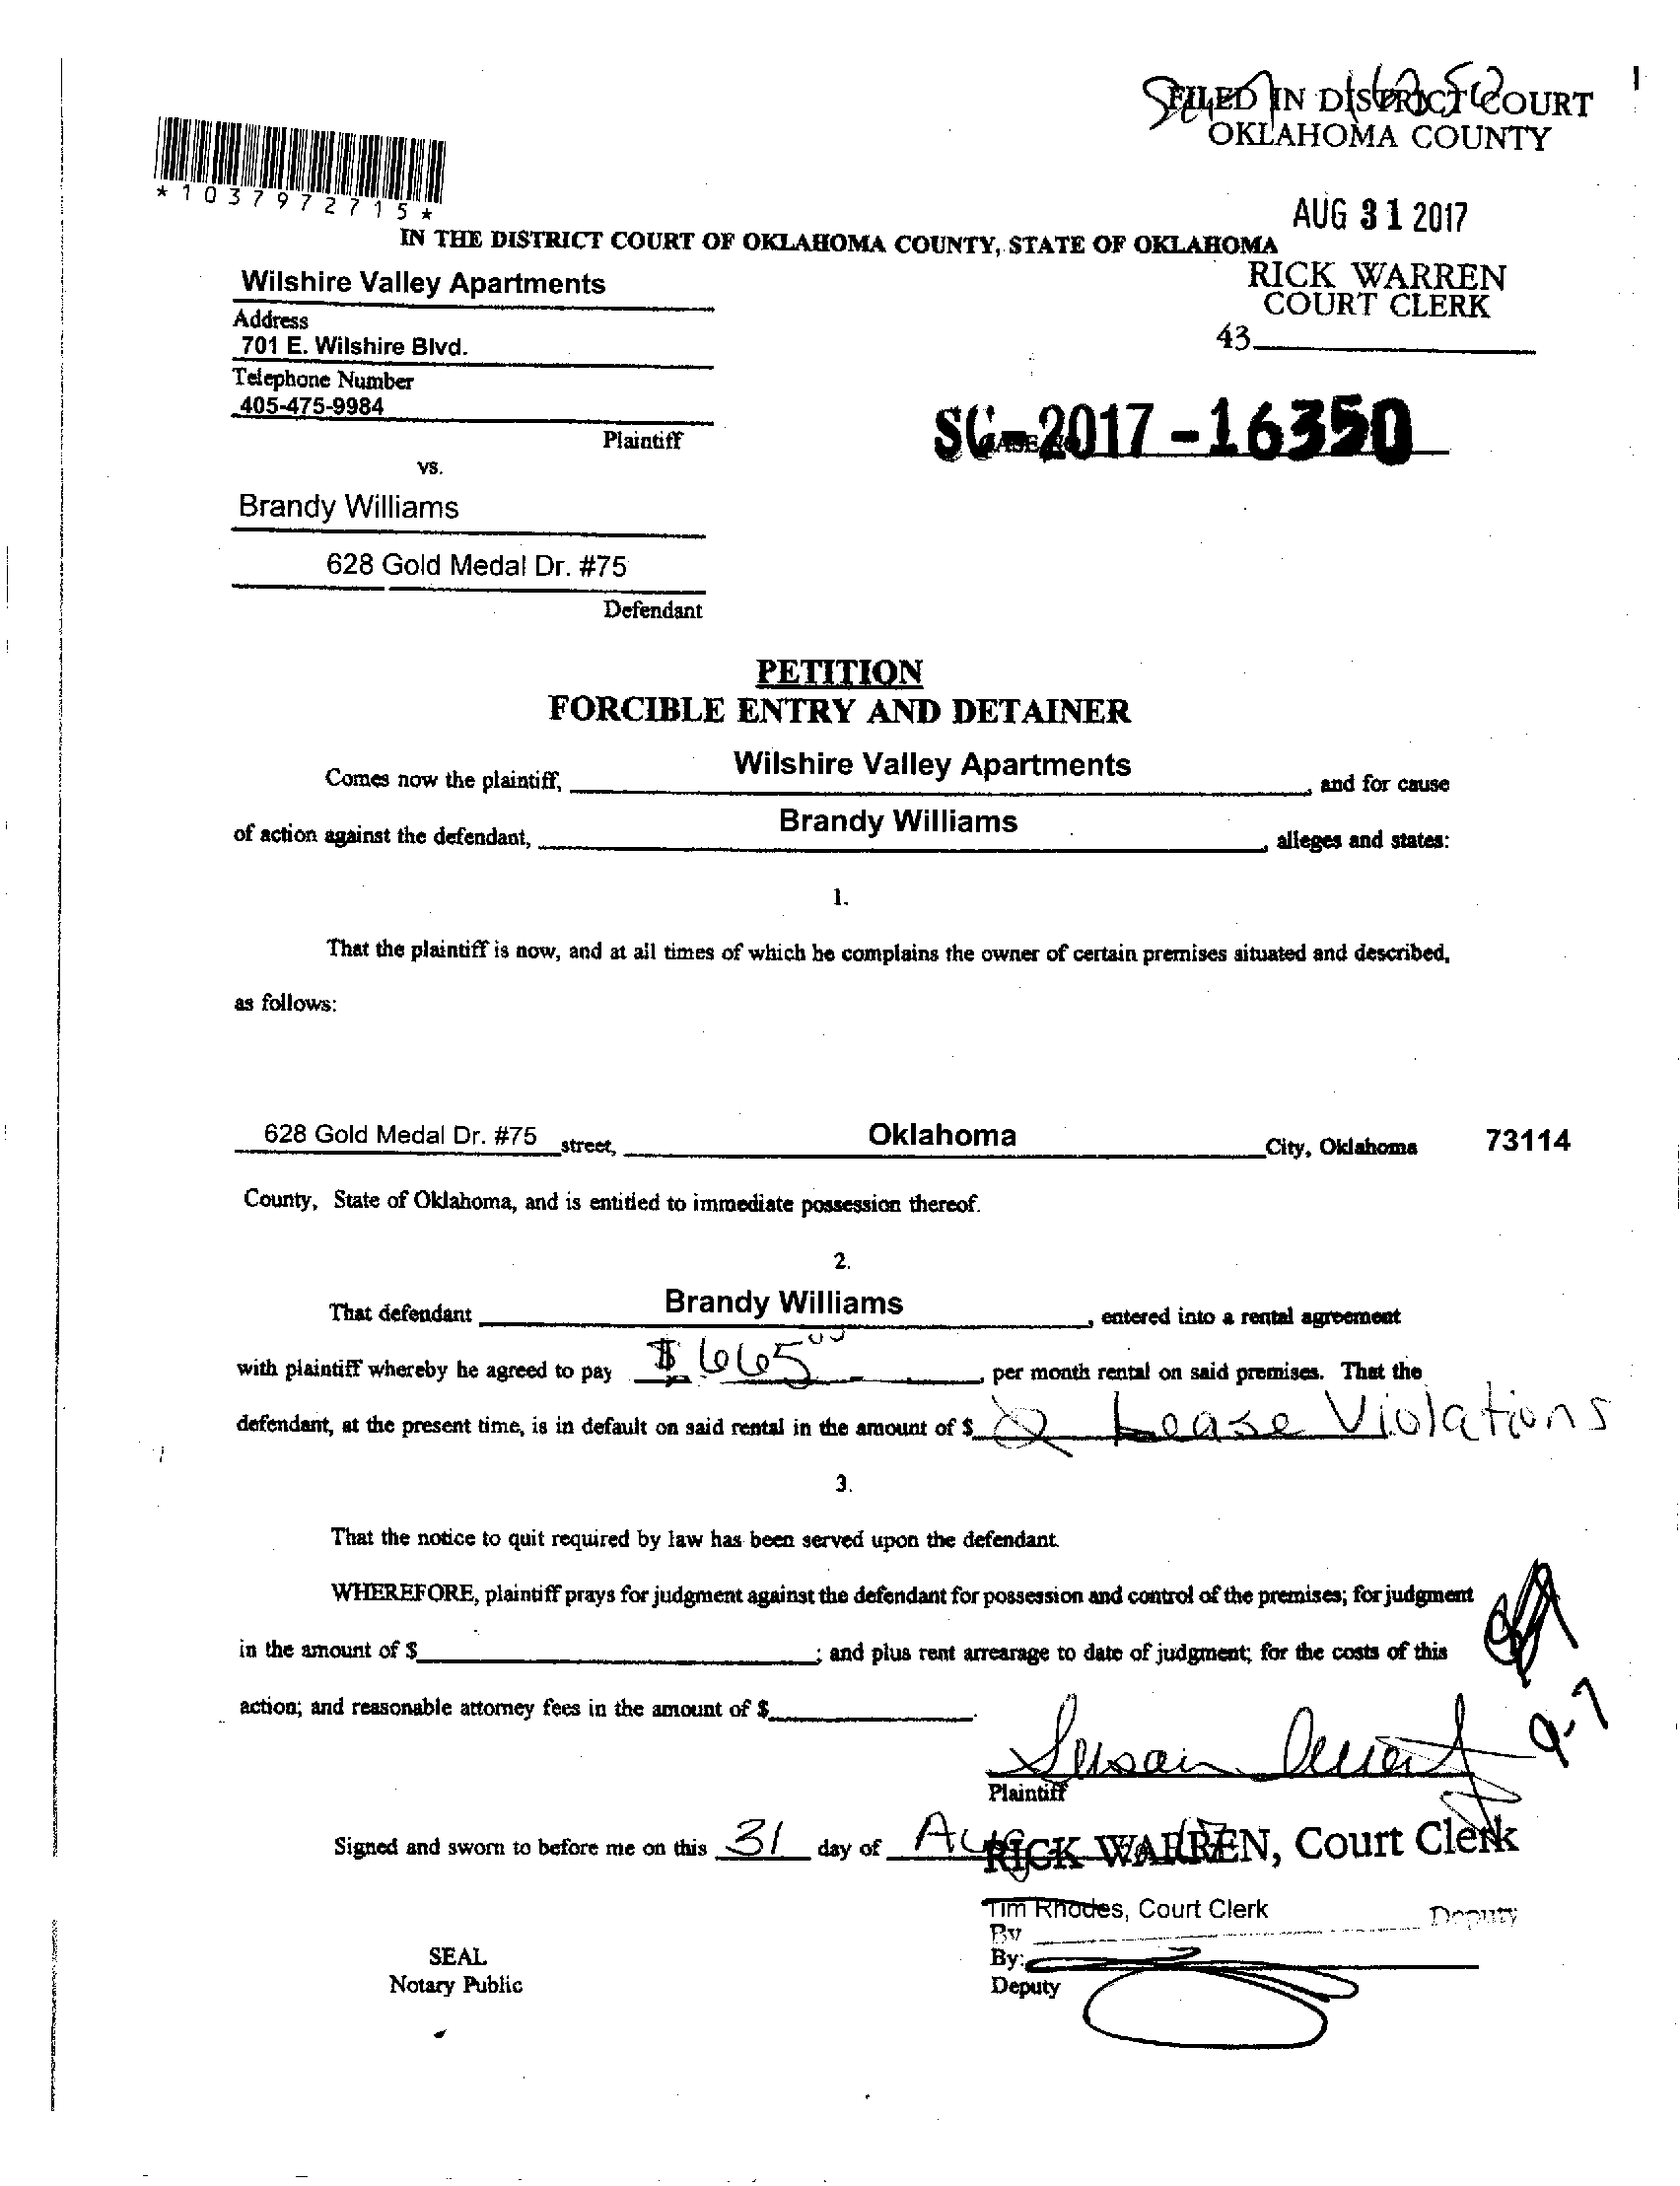 FILED IN DISTRICT COURT
OKLAHOMA COUNTY
*1037972715*
AUG 31 2017
IN THE DISTRICT COURT OF OKLAHOMA COUNTY, STATE OF OKLAHOMA
RICK WARREN
COURT CLERK
43
Wilshire Valley Apartments
Address
701 E. Wilshire Blvd.
Telephone Number
405-475-9984
Plaintiff
SC-2017-16350
vs.
Brandy Williams
628 Gold Medal Dr. #75
Defendant
PETITION
FORCIBLE ENTRY AND DETAINER
Comes now the plaintiff, Wilshire Valley Apartments, and for cause
of action against the defendant, Brandy Williams, alleges and states:
1.
That the plaintiff is now, and at all times of which he complains the owner of certain premises situated and described,
as follows:
628 Gold Medal Dr. #75 street, Oklahoma City, Oklahoma 73114
County, State of Oklahoma, and is entitled to immediate possession thereof.
2.
That defendant Brandy Williams, entered into a rental agreement
with plaintiff whereby he agreed to pay $665.00, per month rental on said premises. That the
defendant, at the present time, is in default on said rental in the amount of $ Lease Violations
3.
That the notice to quit required by law has been served upon the defendant.
WHEREFORE, plaintiff prays for judgment against the defendant for possession and control of the premises; for judgment
in the amount of $ ; and plus rent arrearage to date of judgment; for the costs of this
action; and reasonable attorney fees in the amount of $ .
9-7
Susan
Plaintiff
Signed and sworn to before me on this 31 day of Aug 17
RICK WARREN, Court Clerk
Tim Rhodes, Court Clerk
By Deputy
By:
Deputy
SEAL
Notary Public